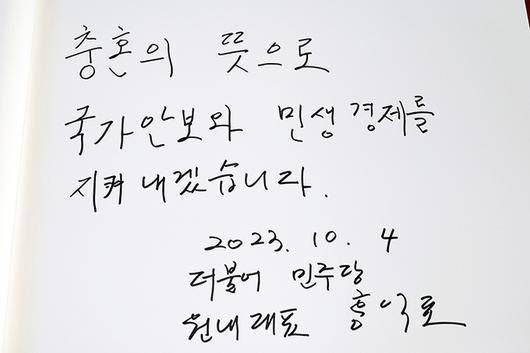 충혼의 뜻으로
국가안보와 민생경제를
지켜 내겠습니다.
2023. 10. 4
더불어 민주당
원내대표 홍익표